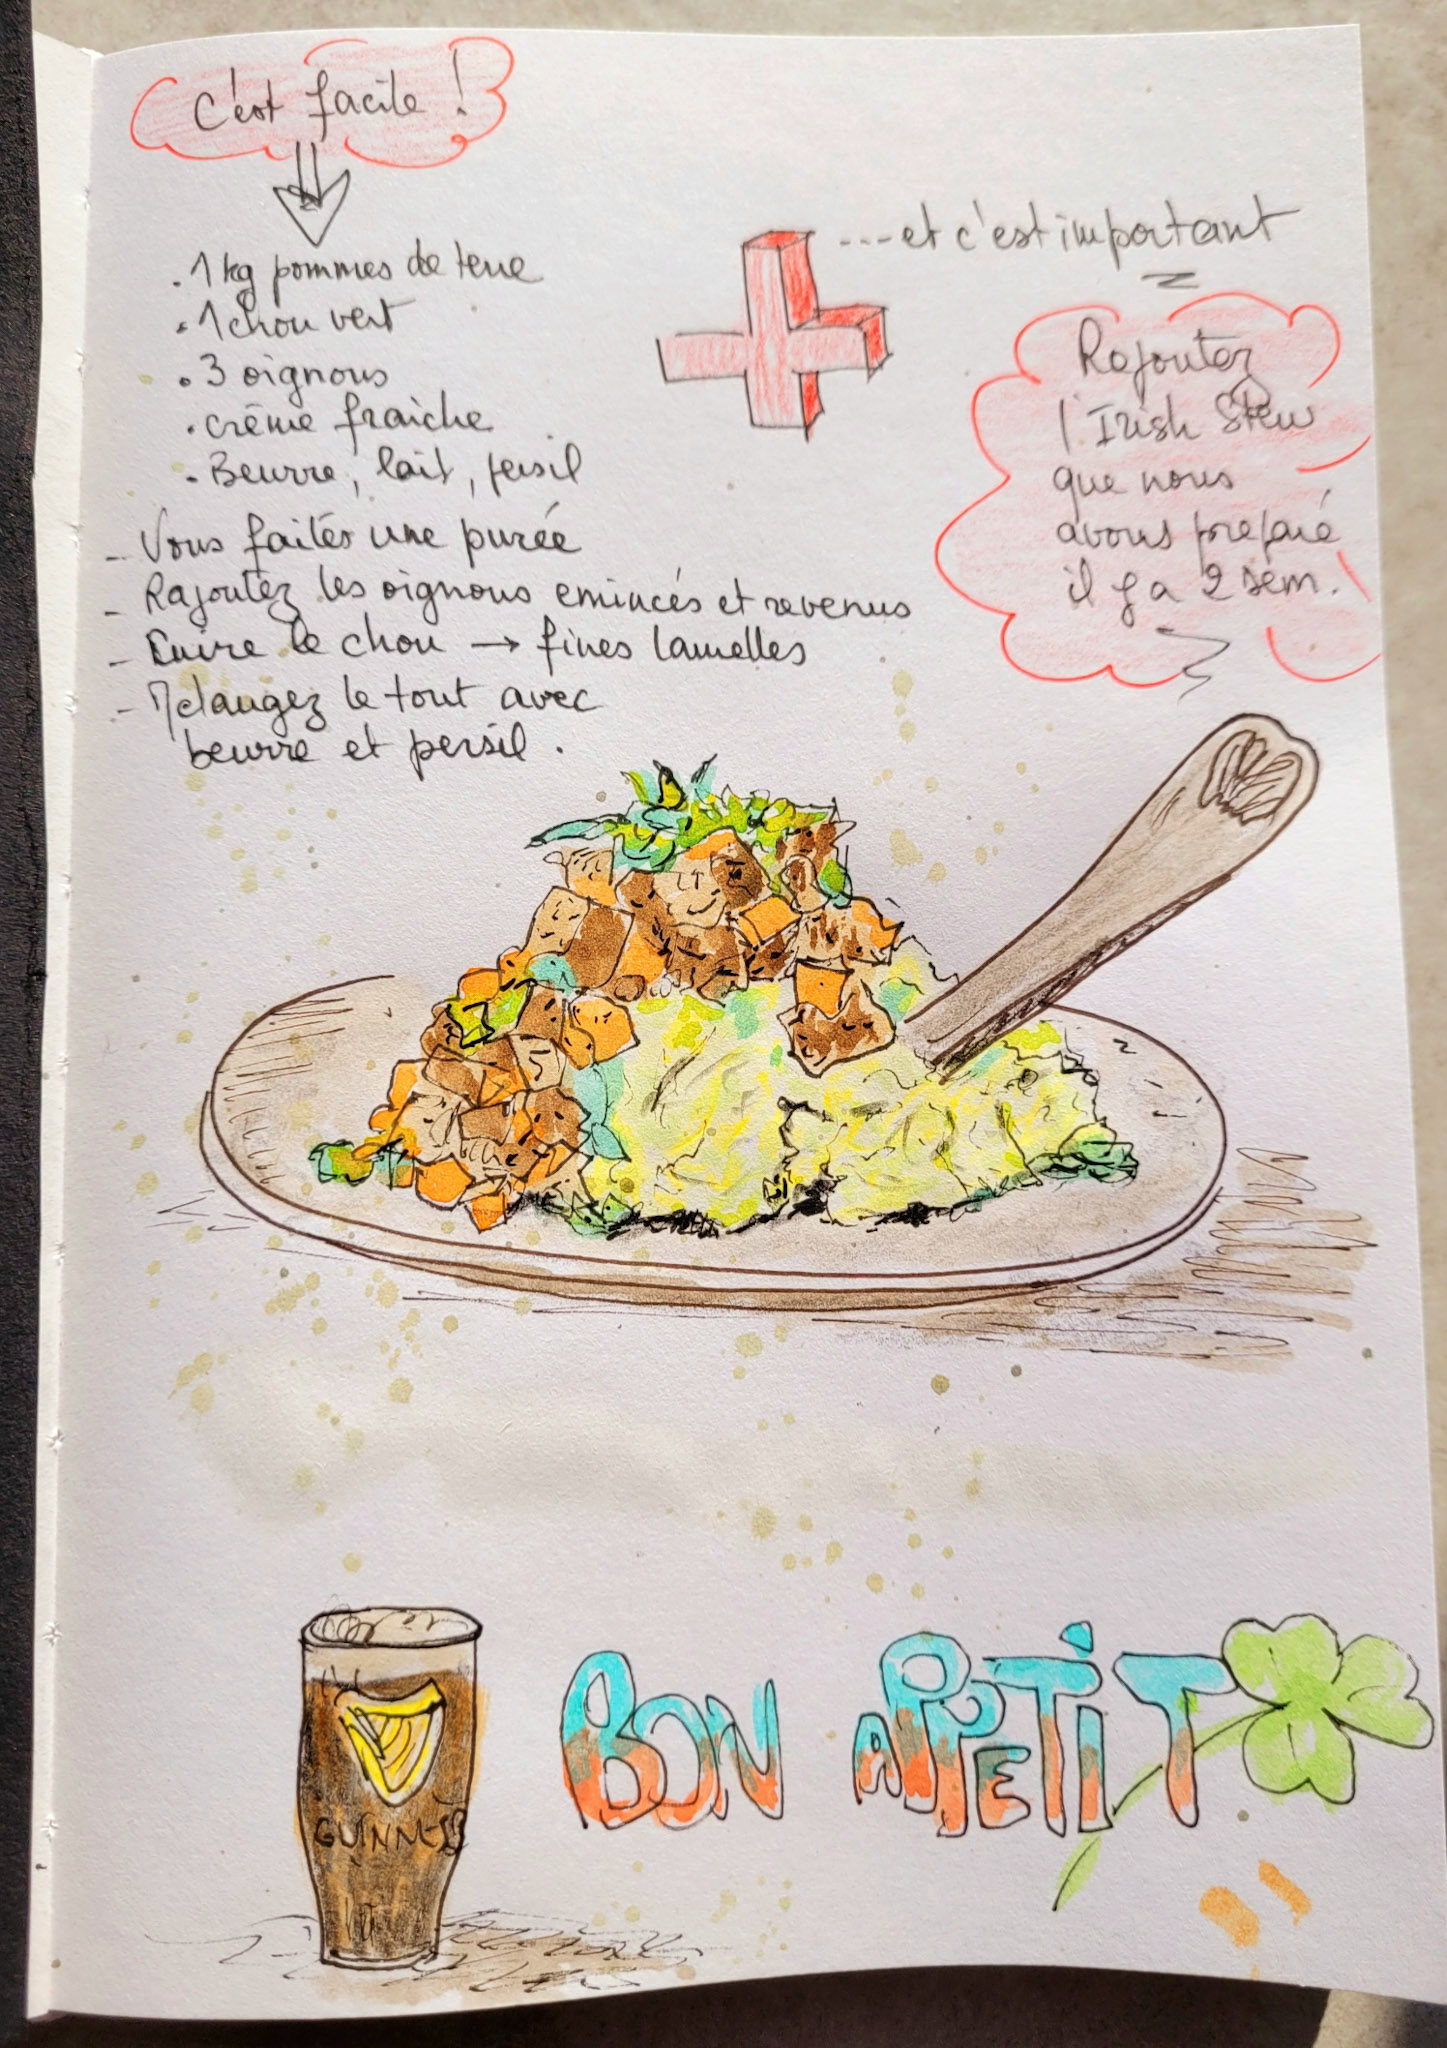 C'est facile !
. 1 kg pommes de terre
. 1 chou vert
. 3 oignons
. crème fraiche
. Beurre, lait, persil
- Vous faites une purée
- Rajoutez les oignons emincés et revenus
- Cuire le chou → fines lamelles
- Mélangez le tout avec
beurre et persil .
---et c'est important
Rajoutez
l'Irish Stew
que nous
avons préparé
il y a 2 sem.
GUINNESS
BON APPETIT